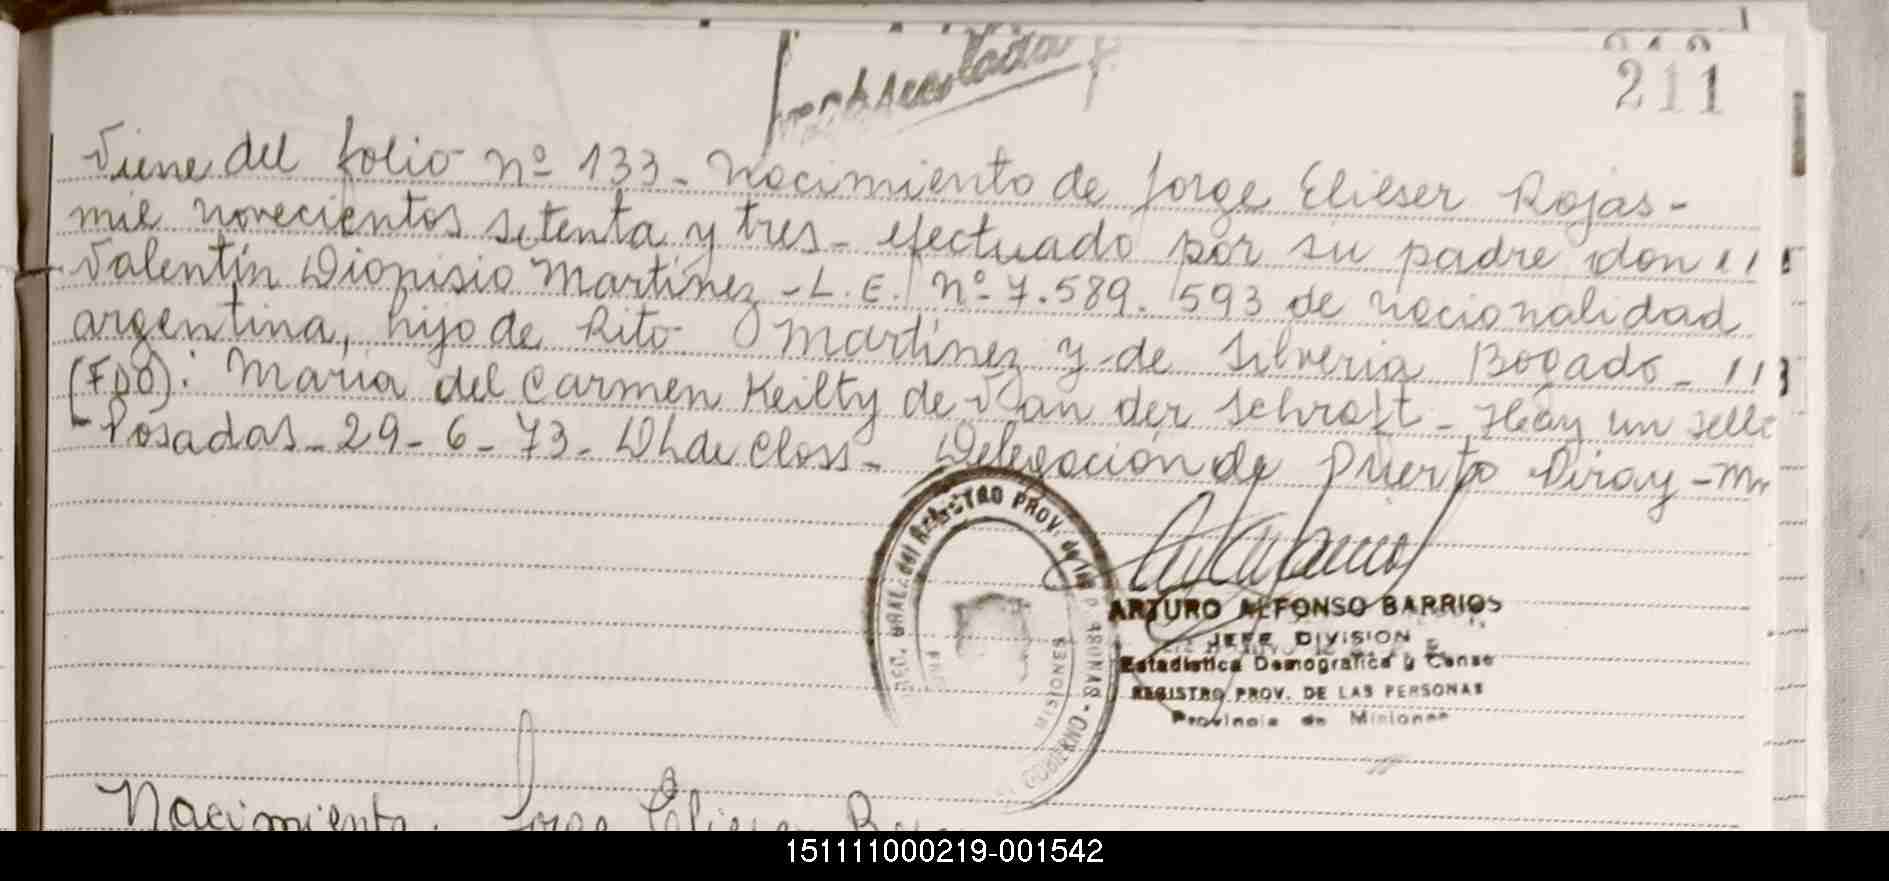 211
Viene del folio nº 133_ Nacimiento de Jorge Elieser Rojas_
mil novecientos setenta y tres_ efectuado por su padre don //
Valentín Dionisio Martínez - L. E. nº 7.589.593 de nacionalidad
argentina, hijo de Rito Martínez y de Silveria Bogado_ //
(FDO): María del Carmen Keilty de Van der Schraft_ Hay un sello
Posadas_29_6_73_ de Closs_ Delegación de Puerto Piray_
REGISTRO PROV. de las
GOBIERNO
MISIONES
ARTURO ALFONSO BARRIOS
JEFE DIVISION
Estadistica Demografica y Censo
REGISTRO PROV. DE LAS PERSONAS
Provincia de Misiones
Nacimiento. Jorge Elieser
151111000219-001542